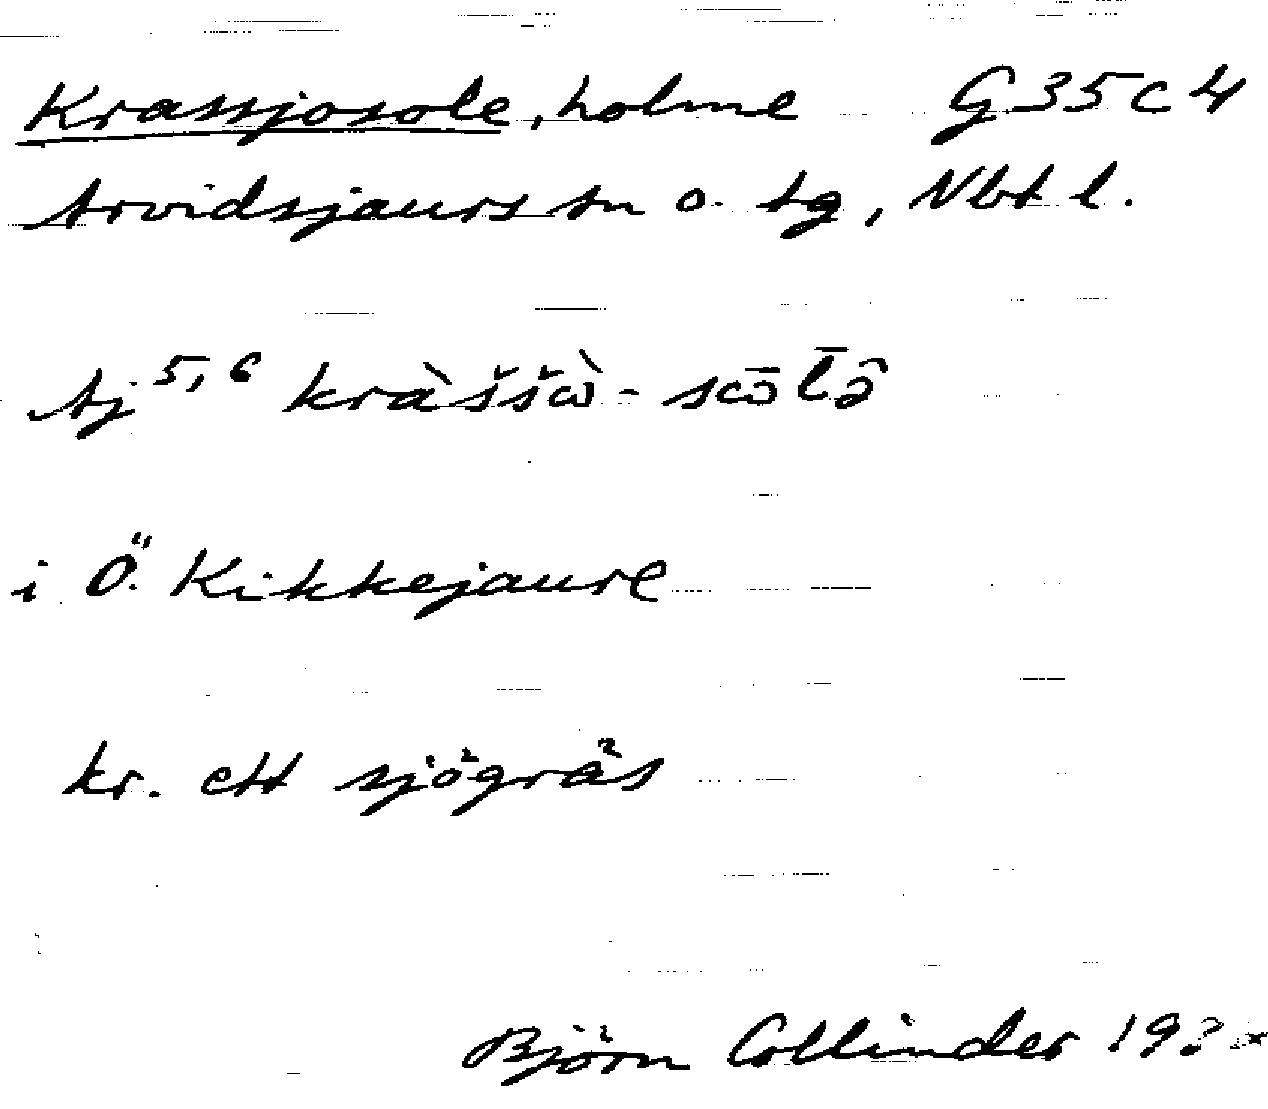 Krassjosole, holme G35c4
Arvidsjaurs sn o. tg, Nbt l.
Aj 5,6 kràššò̀ - sōl̄ō̂
i Ö. Kikkejaure
kr. ett sjögräs
Björn Collinder